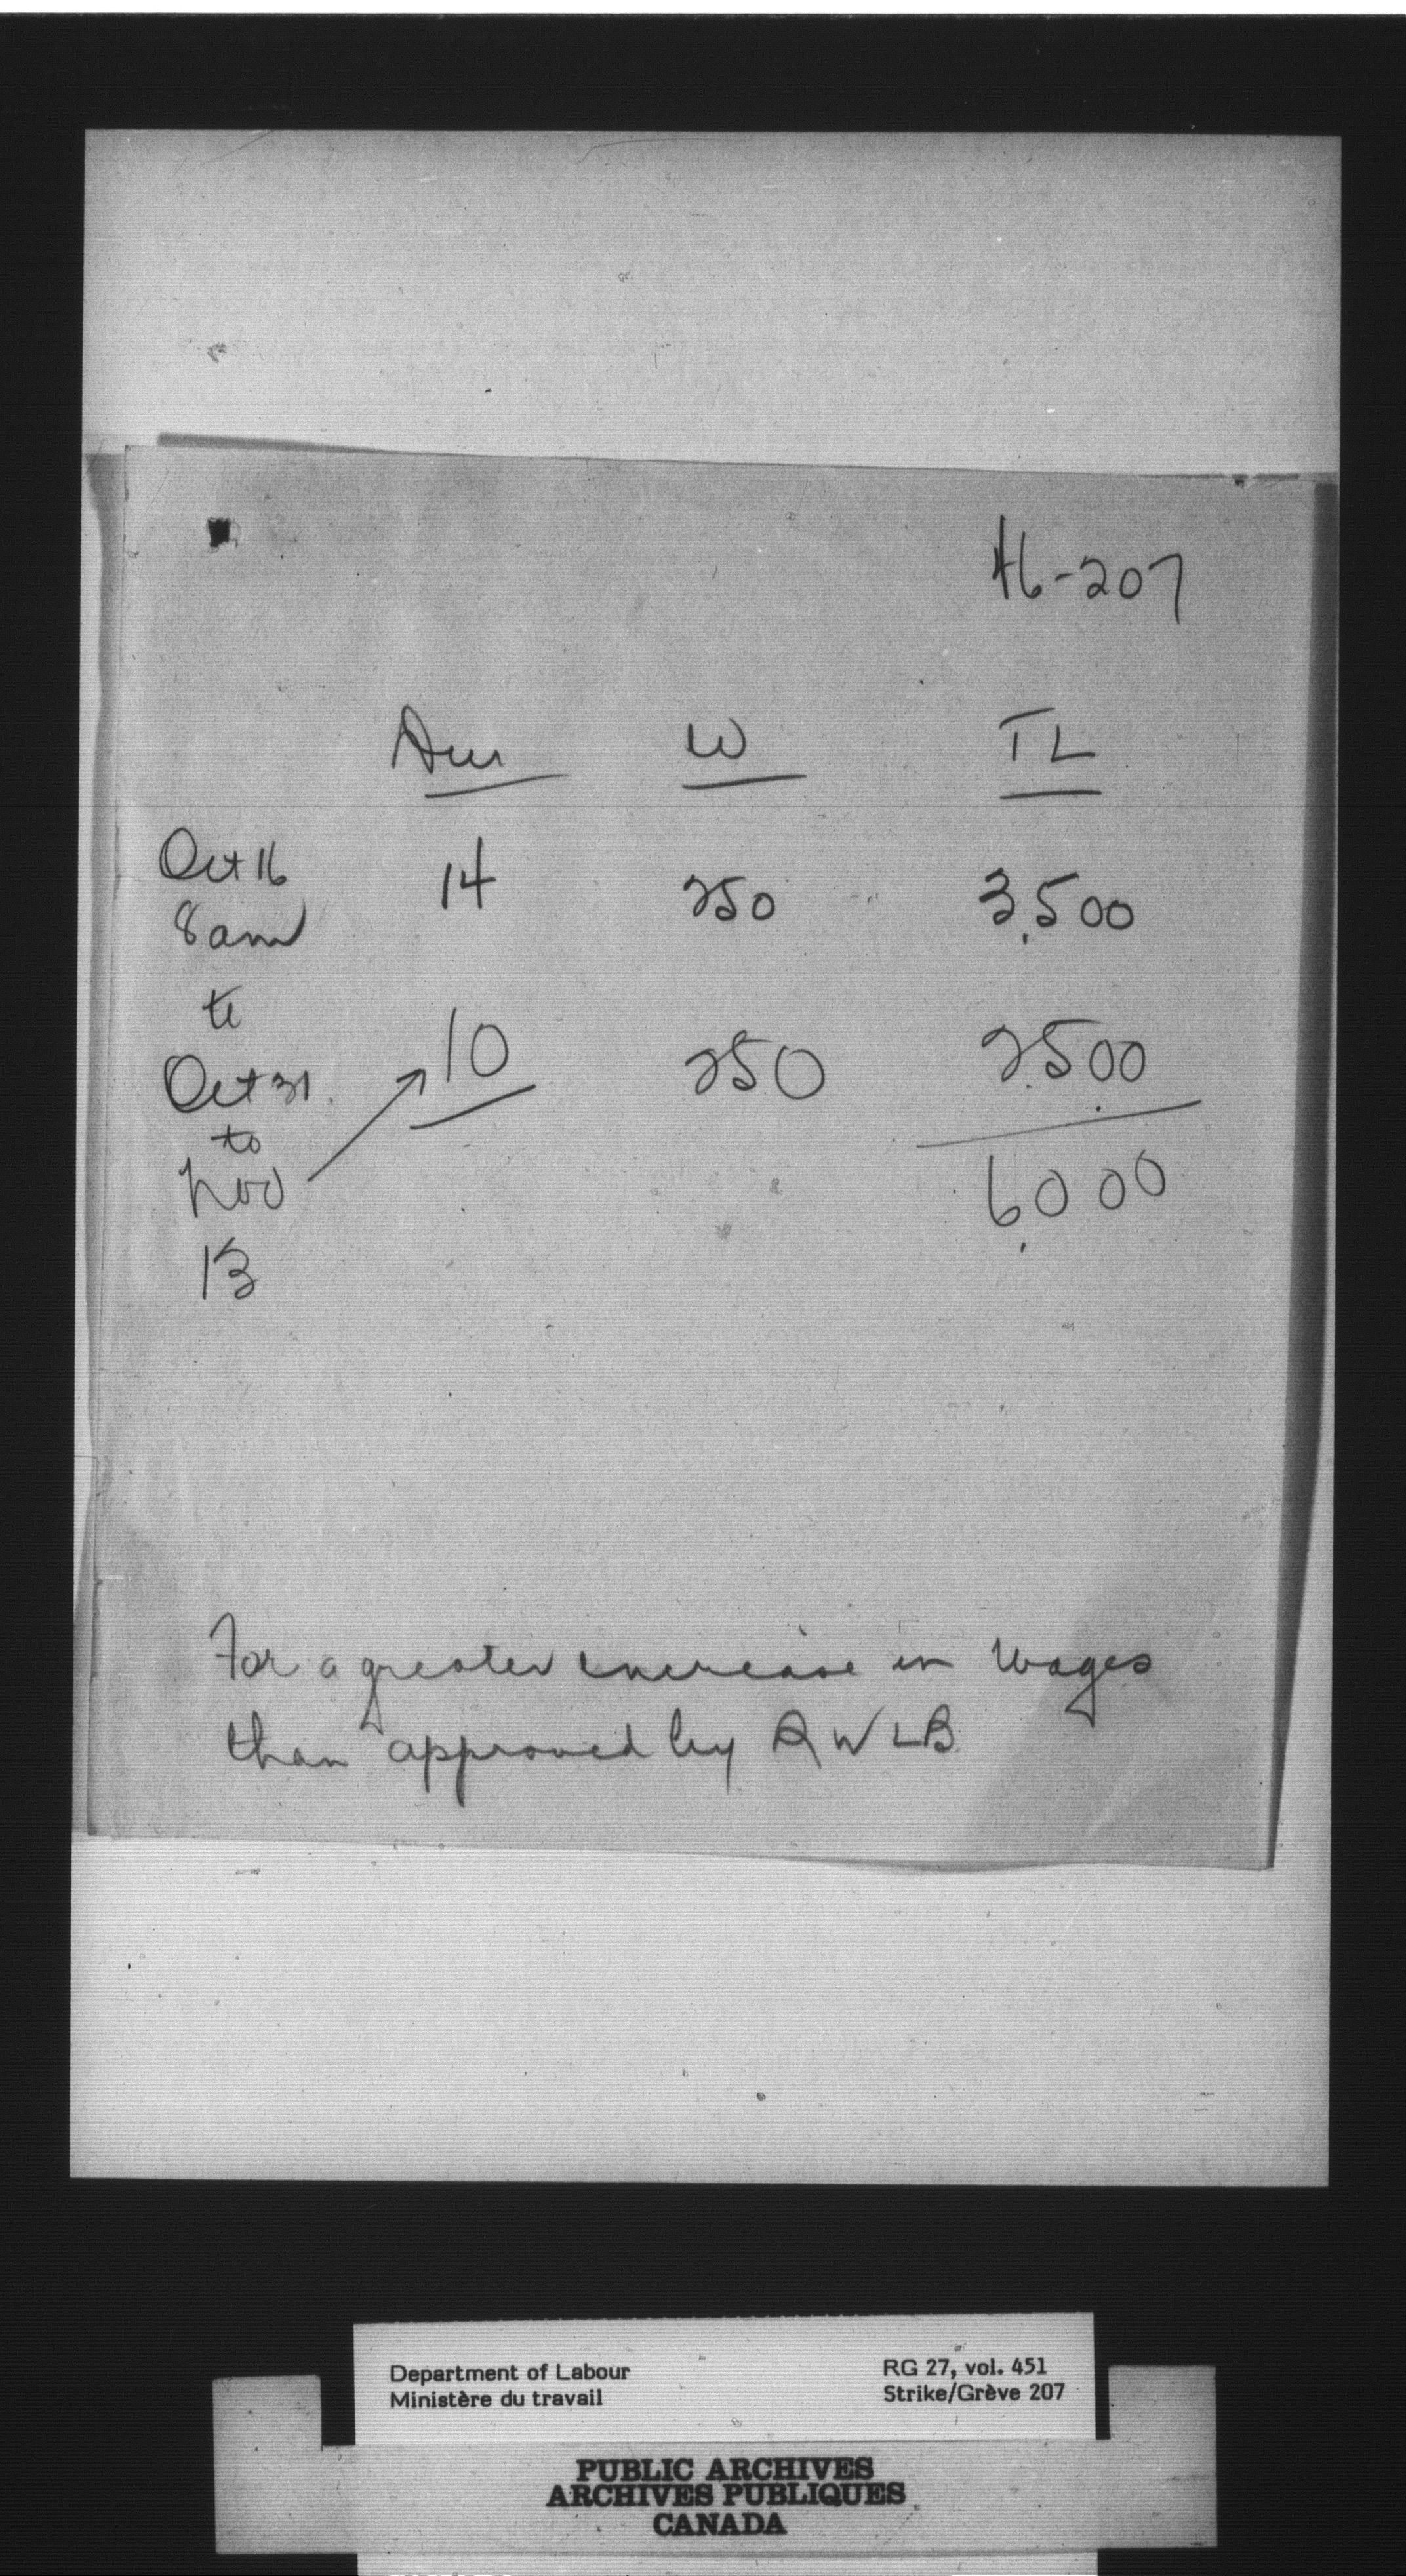 46-207
Dur W TL
Oct 16 14 250 3,500
8 am
to
Oct 31 10 250 2,500
to
Nov
13 6,000
For a greater increase in wages
than approved by RWLB.
Department of Labour RG 27, vol. 451
Ministère du travail Strike/Grève 207
PUBLIC ARCHIVES
ARCHIVES PUBLIQUES
CANADA